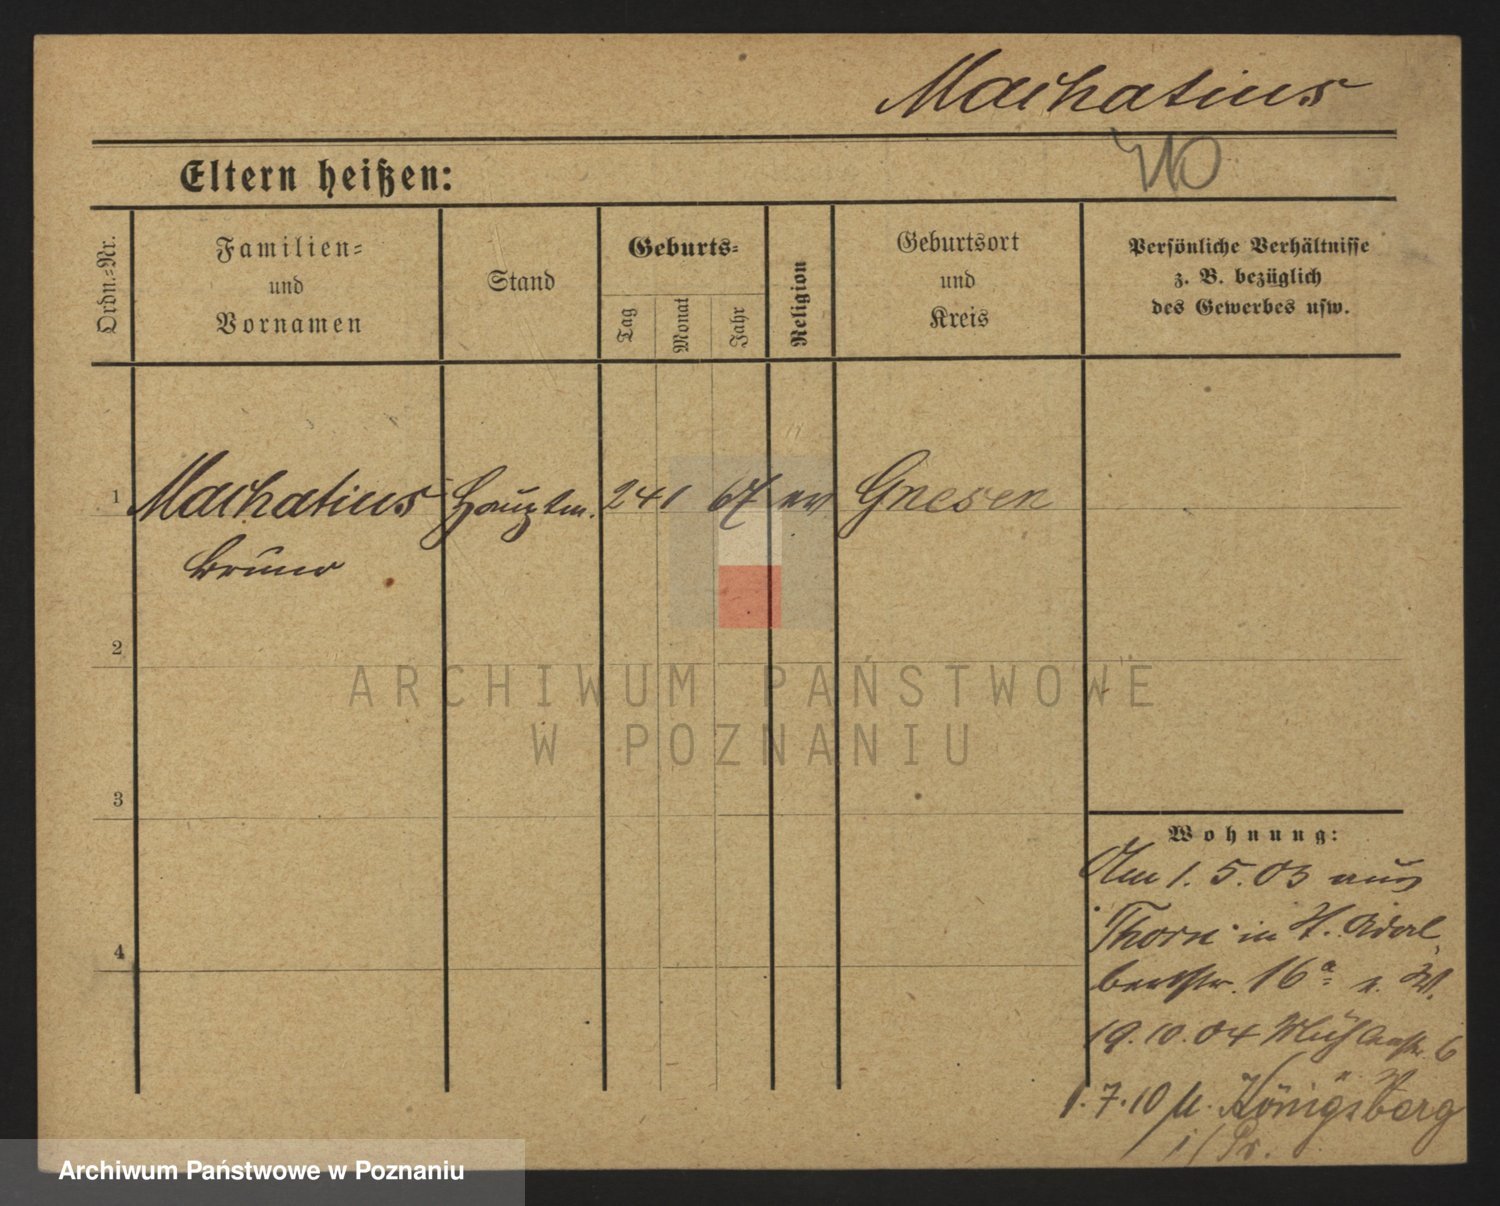 Machatius
Eltern heißen:
Ordn.-Nr.
Familien-
und
Vornamen
Stand
Geburts-
Tag
Monat
Jahr
Religion
Geburtsort
und
Kreis
Persönliche Verhältnisse
z. B. bezüglich
des Gewerbes usw.
1 Machatius Hauptm. 24 1 67 ev Gnesen
Bruno
2
ARCHIWUM PAŃSTWOWE
W POZNANIU
3
4
Wohnung:
Am 1.5.03 aus
Thorn in H. Adal
bertstr. 16a
19.10.04 Mühlenstr. 6
1.7.10 Königsberg
i/Pr.
Archiwum Państwowe w Poznaniu